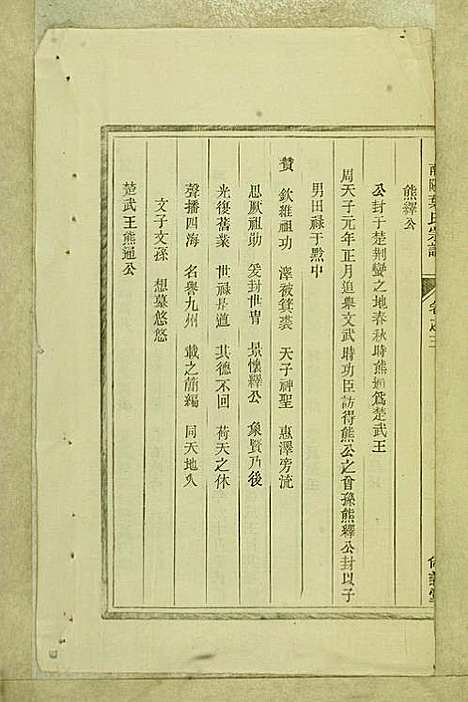 南陽葉氏宗譜
卷之三
熊繹公
公封于楚荆蠻之地春秋時熊通爲楚武王
周天子元年正月追舉文武時功臣訪得熊公之曾孫熊繹公封以子
男田祿于黔中
贊 欽維祖功 澤被箕裘 天子神聖 惠澤旁流
思厥祖勛 爰封世胄 景懷釋公 象賢乃後
光復舊業 世祿是道 其德不回 荷天之休
聲播四海 名舉九州 載之簡編 同天地久
文子文孫 想墓悠悠
楚武王熊通公